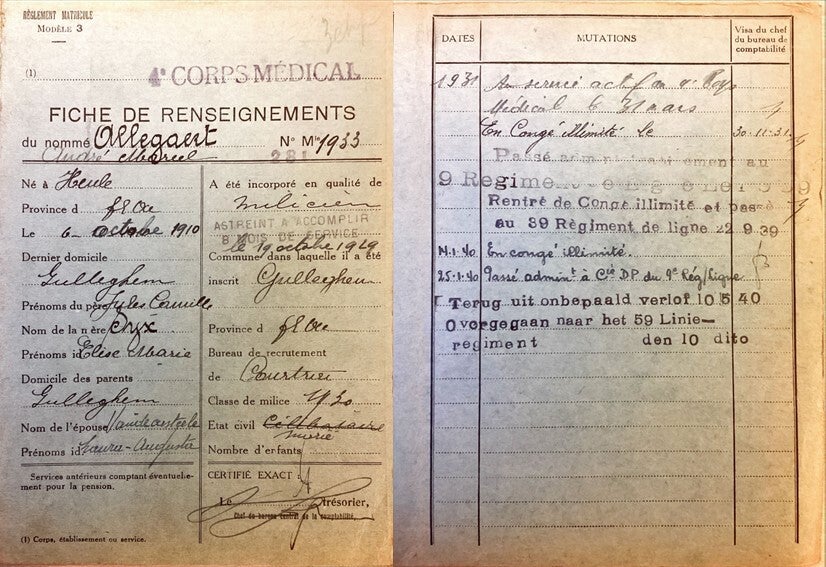 RÈGLEMENT MATRICULE
MODÈLE 3
(1)
4e CORPS MÉDICAL
FICHE DE RENSEIGNEMENTS
du nommé Allegaert No Mle 1933
André Marcel 281
Né à Heule
Province d fl Occ
Le 6 octobre 1910
Dernier domicile
Gulleghem
Prénoms du père Jules Camille
Nom de la mère
Prénoms id Elise Marie
Domicile des parents
Gulleghem
Nom de l'épouse
Prénoms id Laura-Augusta
Services antérieurs comptant éventuellement pour la pension.
(1) Corps, établissement ou service.
A été incorporé en qualité de
milicien
ASTREINT A ACCOMPLIR
8 MOIS DE SERVICE
le 19 octobre 1929
Commune dans laquelle il a été
inscrit Gulleghem
Province d fl Occ
Bureau de recrutement
de Courtrai
Classe de milice 1930
Etat civil Célibataire
marié
Nombre d'enfants
CERTIFIÉ EXACT :
Le trésorier,
Chef du bureau central de la comptabilité.
DATES MUTATIONS Visa du chef du bureau de comptabilité
1931 Au service actif au 4e Corps
Médical le 31 mars
En Congé illimité le 30-11-31
Passé administrativement au
9 Regiment
Rentré de Congé illimité et passé
au 39 Règiment de ligne 22.9.39
14.1.40 En congé illimité.
25.1.40 Passé admint à Cie DP du 9e Rég/Ligne
Terug uit onbepaald verlof 10 5 40
Overgegaan naar het 59 Linie-
regiment den 10 dito